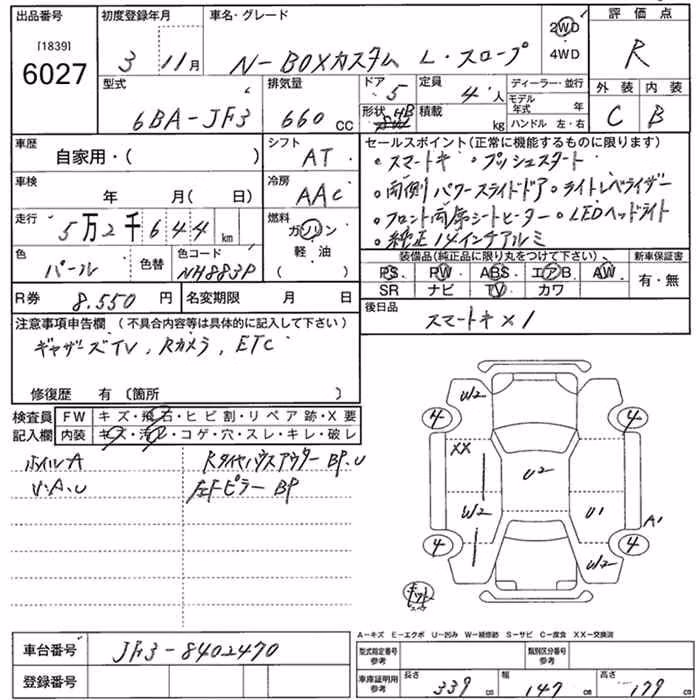 出品番号 初度登録年月 車名・グレード 評価点
[1839] 6027 3 11月 N-BOXカスタム L・スロープ 2WD 4WD R
型式 排気量 ドア 定員 ディーラー・並行 外装 内装
6BA-JF3 660 CC 5 4人 モデル年式 年 C B
形状 4B 積載 kg ハンドル 左・右
車歴 シフト セールスポイント(正常に機能するものに限ります)
自家用・( ) AT
。スマートキー 。プッシュスタート
車検 冷房
年 月( 日) AAC
。両側パワースライドドア 。ライトレベライザー
走行 燃料
5万2千644km ガソリン
。フロント両席シートヒーター 。LEDヘッドライト
軽油
( )
。純正14インチアルミ
色 色替 色コード
パール NH883P
装備品(純正品に限り丸をつけて下さい) 新車保証書
PS PW ABS エアB AW 有・無
SR ナビ TV カワ
R券 8.550円 名変期限 月 日
後日品
スマートキー×1
注意事項申告欄 (不具合内容等は具体的に記入して下さい)
ギャザーズTV, Rカメラ, ETC
修復歴 有 (箇所 )
検査員 FW キズ・飛石・ヒビ割・リペア跡・X要
記入欄 内装 キズ・汚れ・コゲ・穴・スレ・キレ・破レ
ホイルA RタイヤハウスアウターBP.U
左FピラーBP
W2
4 4
XX
U2
W2 U1
A1
4 4
W2
A-キズ E-エクボ U-凹み W-補修跡 S-サビ C-腐食 XX-交換済
車台番号 JF3-8402470
型式指定番号 参考 類別区分番号 参考
登録番号
車庫証明用 参考 長さ 339cm 幅 147cm 高さ 179cm